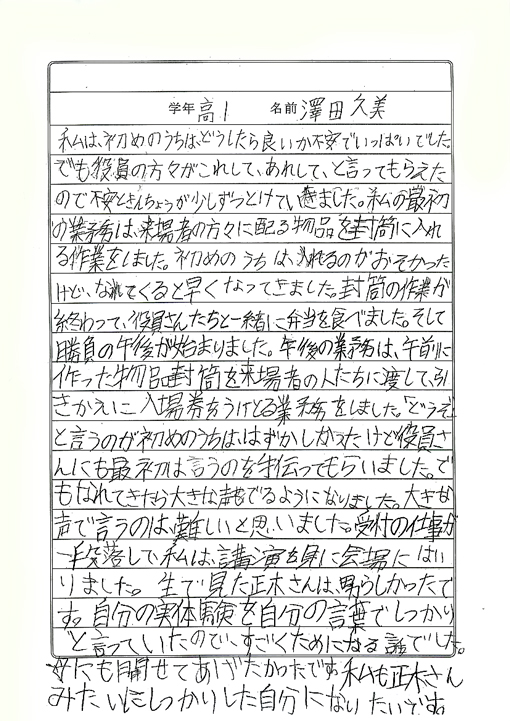 学年 高1 名前 澤田久美
私は、初めのうちは、どうしたら良いか不安でいっぱいでした。
でも役員の方々がこれして、あれして、と言ってもらえた
ので不安ときんちょうが少しずつとけていきました。私の最初
の業務は、来場者の方々に配る物品を封筒に入れ
る作業をしました。初めのうちは、入れるのがおそかった
けど、なれてくると早くなってきました。封筒の作業が
終わって、役員さんたちと一緒に弁当を食べました。そして
勝負の午後が始まりました。午後の業務は、午前に
作った物品封筒を来場者の人たちに渡して、引
きかえに入場券をうけとる業務をしました。「どうぞ」
と言うのが初めのうちは、はずかしかったけど役員さ
んにも最初は言うのを手伝ってもらいました。で
もなれてきたら大きな声もでるようになりました。大きな
声で言うのは、難しいと思いました。受付の仕事が
一段落して、私は、講演を見に会場にはい
りました。生で見た正木さんは、男らしかったで
す。自分の実体験を自分の言葉でしっかり
と言っていたので、すごくためになる話でした。
にも聞せてあげたかったです。私も正木さん
みたいにしっかりした自分になりたいです。